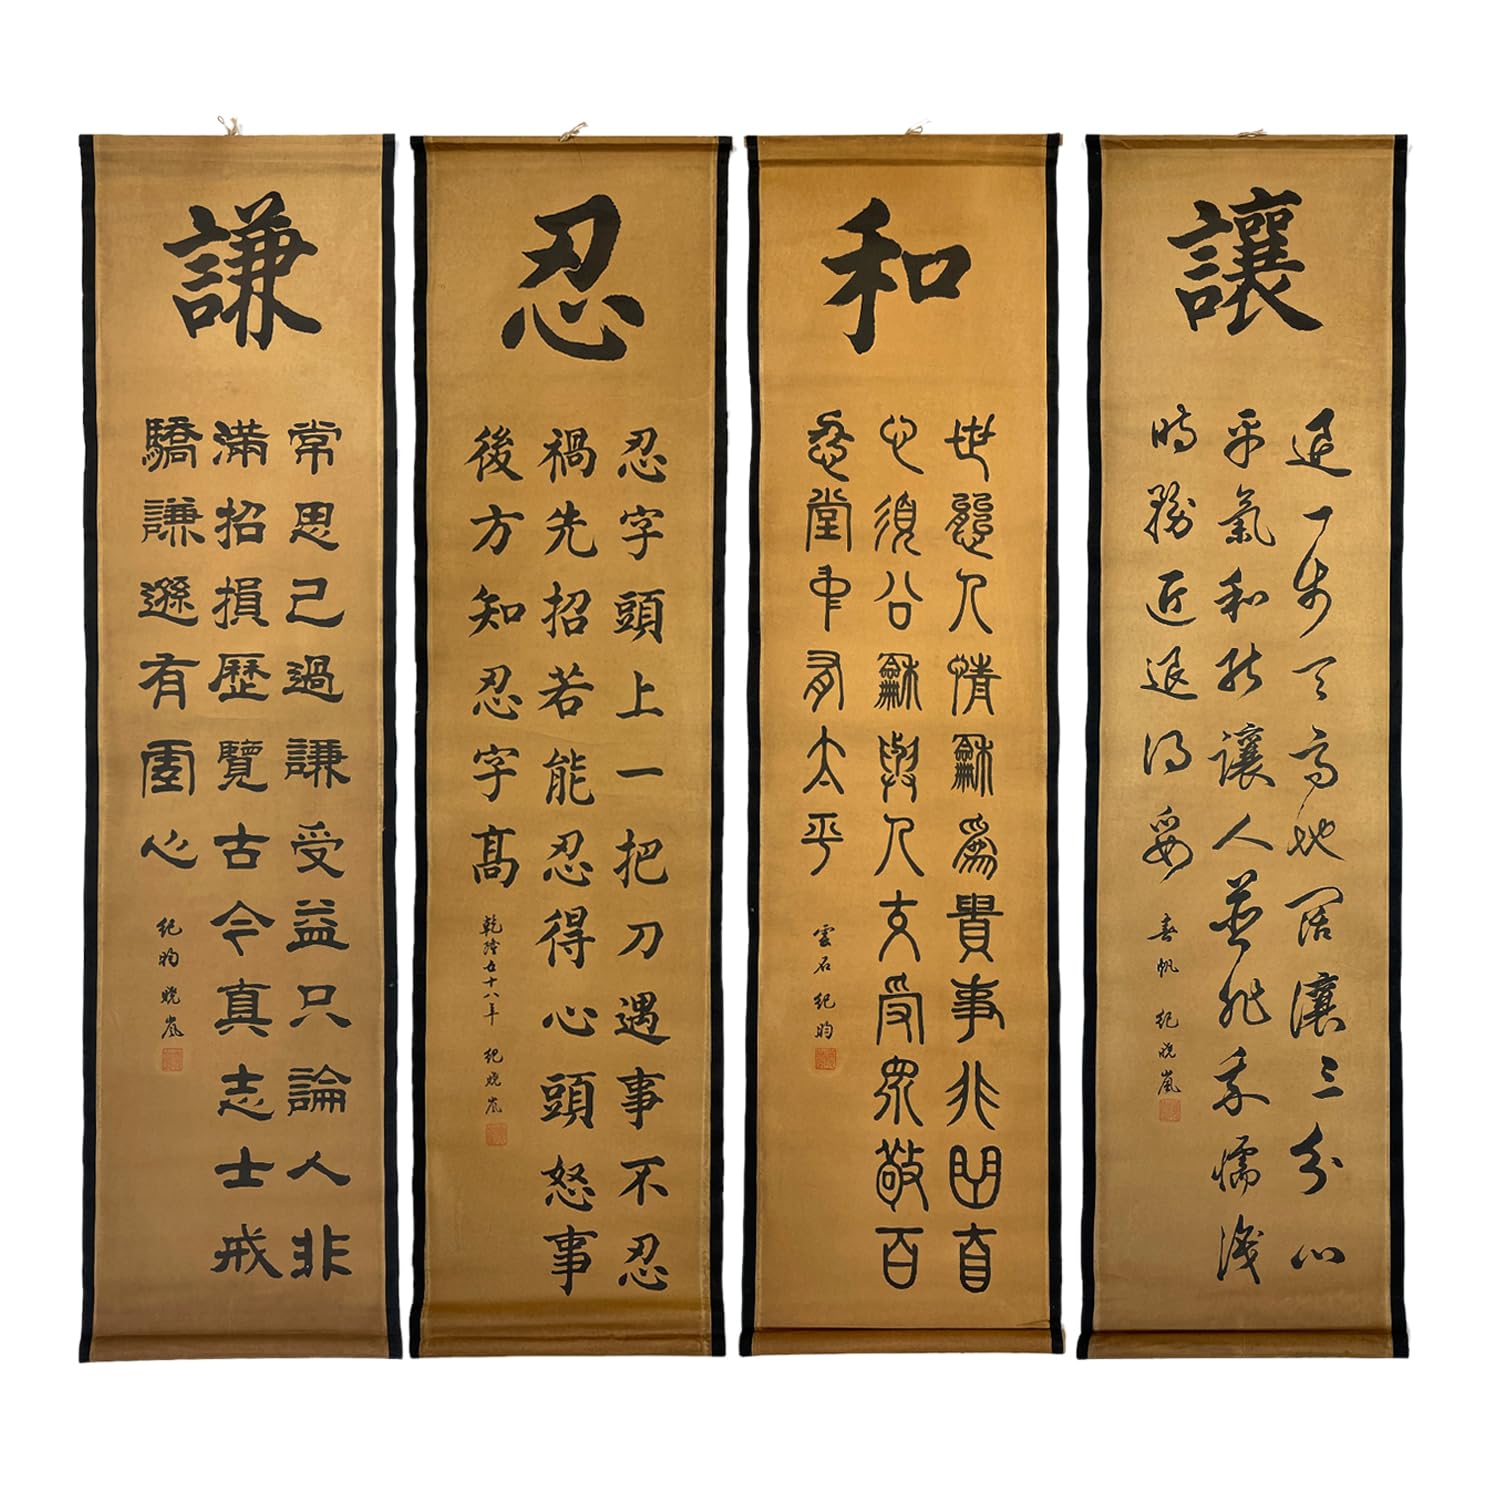 讓
退一步天高地闊讓三分心
平氣和能讓人並非我懦識
時務進退得妥
春帆 紀曉嵐
和
世態人情龢為貴事非曲直
心須公龢與人交受眾敬百
忍堂中有太平
雲石 紀昀
忍
忍字頭上一把刀遇事不忍
禍先招若能忍得心頭怒事
後方知忍字高
乾隆五十八年 紀曉嵐
謙
常思己過謙受益只論人非
滿招損歷覽古今真志士戒
驕謙遜有虛心
紀昀 曉嵐